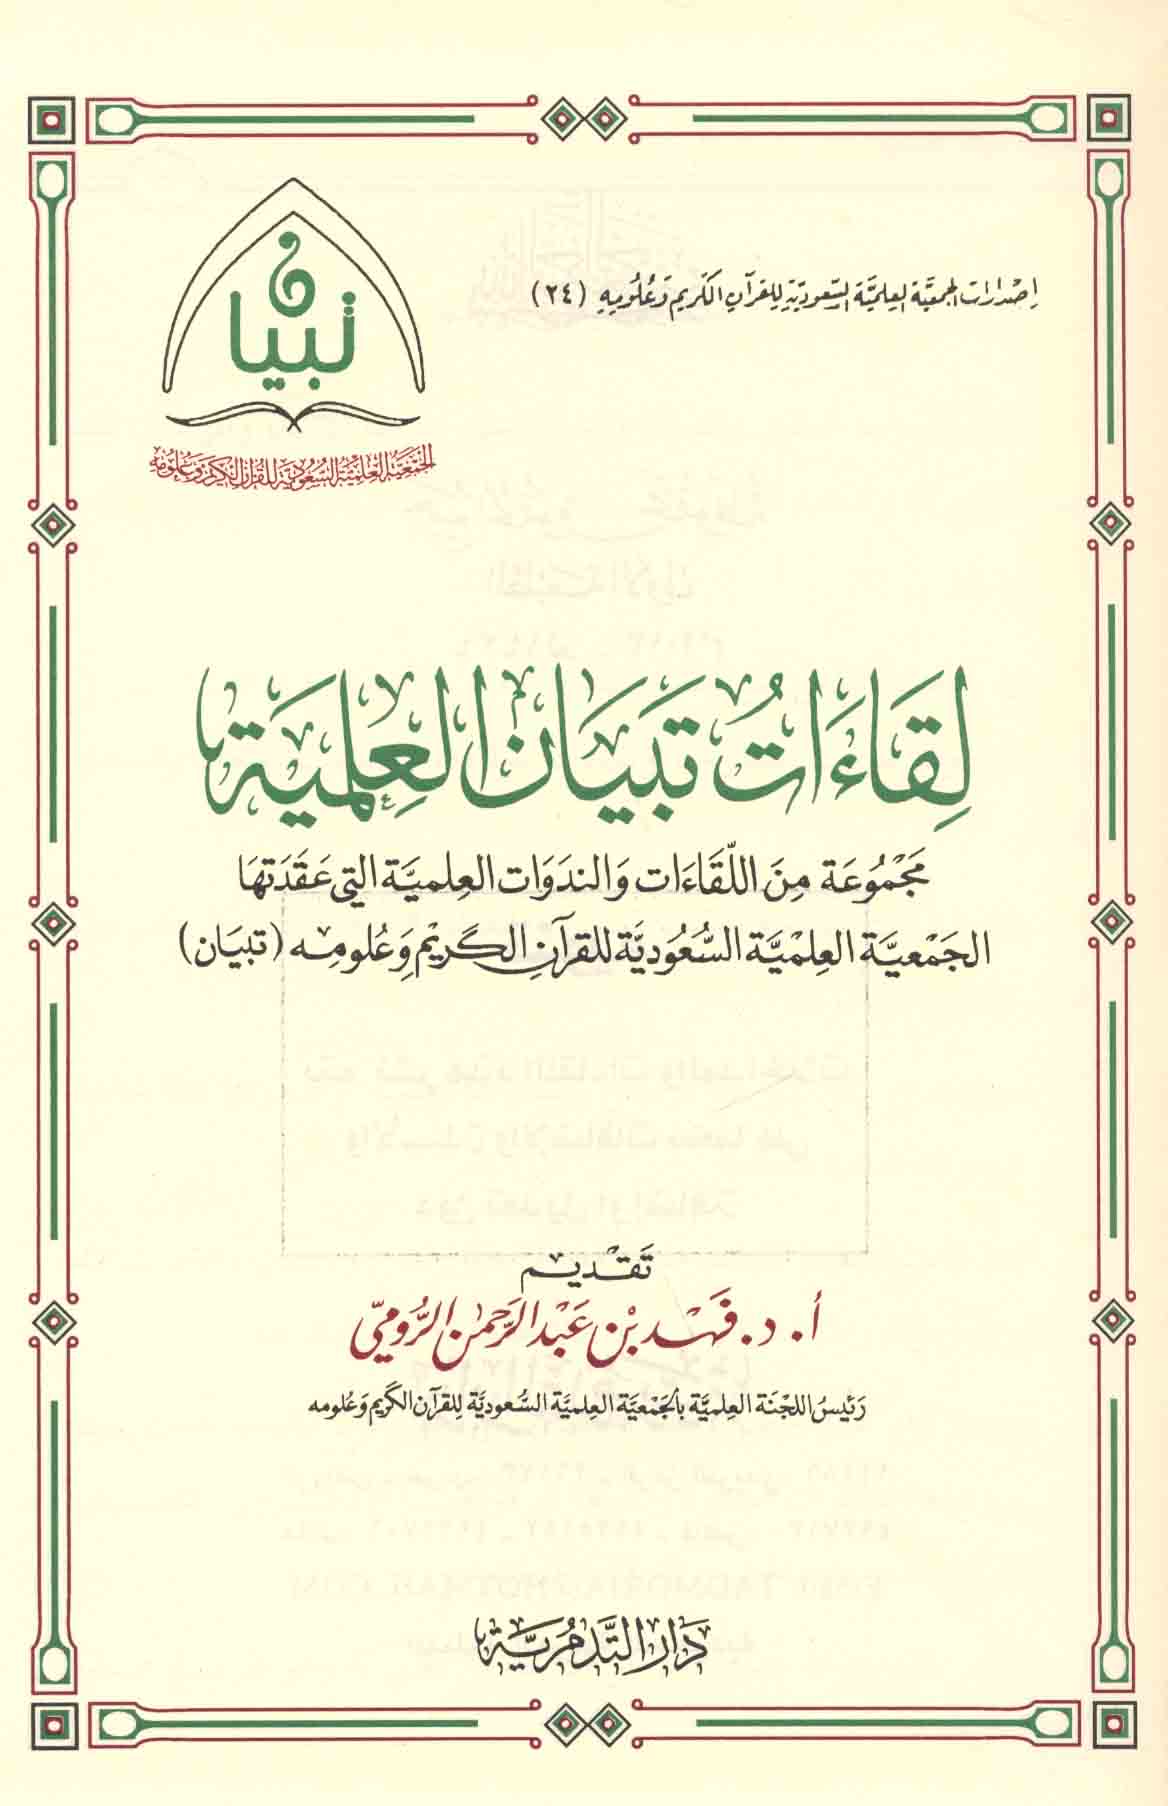 إصدارات الجمعيَّة العلميَّة السعوديَّة للقرآن الكريم وعُلُومِهِ (٢٤)
تبيان
الجمعية العلمية السعودية للقرآن الكريم وعلومه
لِقَاءَاتُ تبيَان العِلميَّة
مَجْمُوعَة مِنَ اللّقَاءَات وَالندَوَات العِلميَّة التي عَقَدَتهَا
الجَمْعيَّة العِلْميَّة السُّعُوديَّة للقرآنِ الكَريْم وَعُلومِه (تبيَان)
تَقْديم
أ. د. فَهْد بْن عَبْد الرَّحمٰن الرُّوميّ
رَئيسُ اللجْنَة العِلميَّة بالجَمْعيَّة العِلميَّة السُّعوديَّة لِلقرآن الكَريم وَعُلومه
دَارُ التَّدمُريَّة